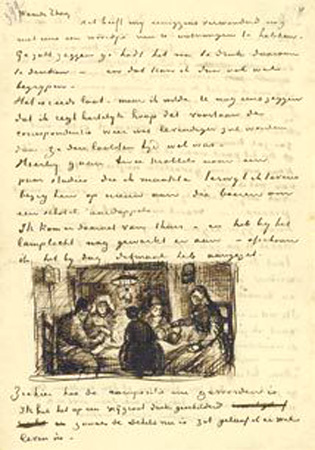 Waarde Theo,
Het heeft mij eenigzins verwonderd nog
niet eens een woordje van U te ontvangen te hebben.
Ge zult zeggen ge hadt het te druk daarom
te denken – en dat kan ik dan ook wel
begrijpen.
Het is reeds laat – maar ik wilde U nog eens zeggen
dat ik regt hartelijk hoop dat voortaan de
correspondentie weer wat levendiger zal worden
dan ze den laatsten tijd wel was.
Hierbij gaan twee krabbels naar een
paar studies die ik maakte terwijl ik tevens
bezig ben op nieuw aan die boeren om
een schotel aardappels.
Ik kom er daareven van thuis – en heb bij het
lamplicht nog gewerkt er aan – ofschoon
ik het bij dag ditmaal heb aangezet.
Ziehier hoe de compositie nu geworden is.
Ik heb het op een vrij groot doek geschilderd
en zooals de schets nu is zit geloof ik er wel
leven in.